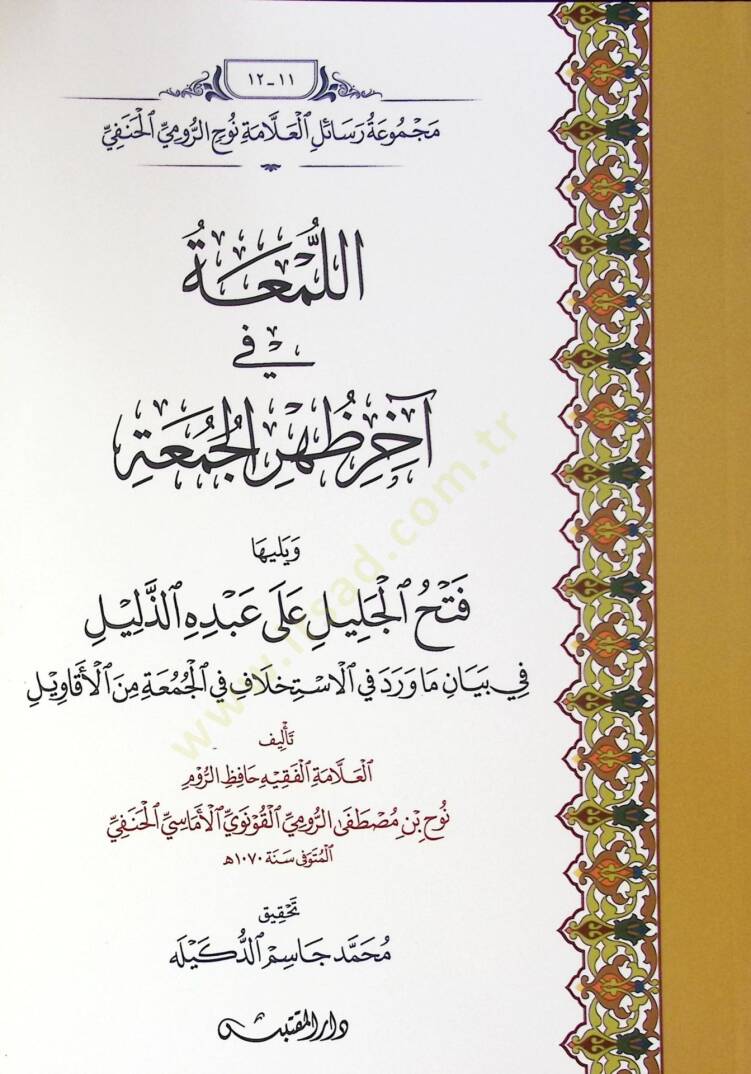 ١١-١٢
مَجْمُوعَةُ رَسَائِلِ الْعَلَّامَةِ نُوحٍ الرُّومِيِّ الْحَنَفِيِّ
اللُّمْعَةُ
فِي
آخِرِ ظُهْرِ الْجُمُعَةِ
وَيَلِيهَا
فَتْحُ الْجَلِيلِ عَلَى عَبْدِهِ الذَّلِيلِ
فِي بَيَانِ مَا وَرَدَ فِي الْاسْتِخْلَافِ فِي الْجُمُعَةِ مِنَ الْأَقَاوِيلِ
تَأْلِيف
الْعَلَّامَةِ الْفَقِيهِ حَافِظِ الرُّومِ
نُوحِ بْنِ مُصْطَفَى الرُّومِيِّ الْقُونَوِيِّ الْأَمَاسِيِّ الْحَنَفِيِّ
الْمُتَوَفَّى سَنَة ١٠٧٠هـ
تَحْقِيق
مُحَمَّد جَاسِم الدُّكَيْلَه
دار المقتبس
www.irsad.com.tr